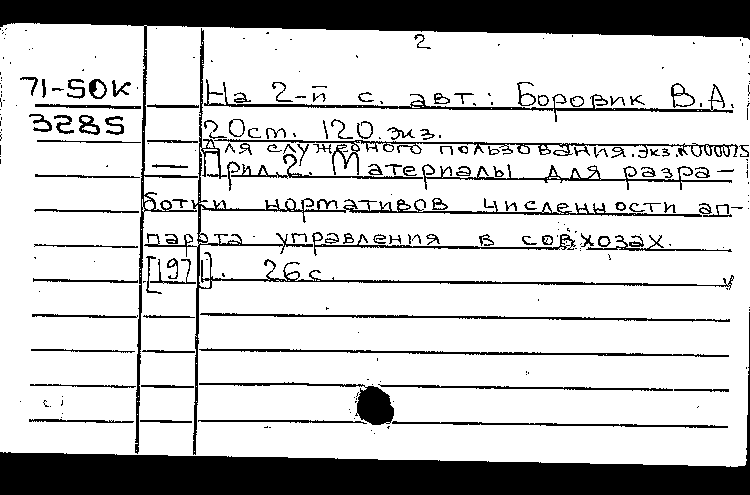 2
71-5OK На 2-й с. авт.: Боровик В.А.
3285 20см. 120 экз.
Для служебного пользования. Экз. N 000075
— Прил. 2. Материалы для разра-
ботки нормативов численности ап-
парата управления в совхозах.
[1971]. 26 с.